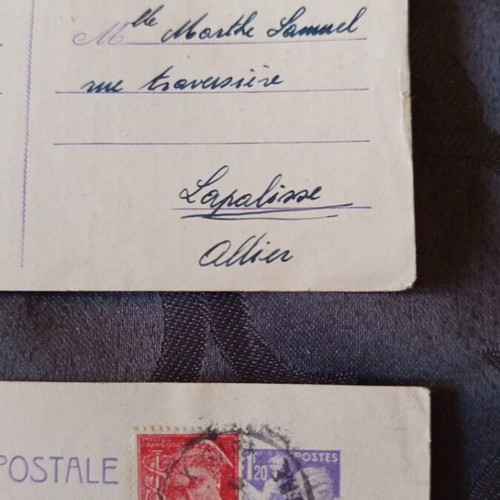 Mlle Marthe Samuel
rue traversière
Lapalisse
Allier
POSTALE
1,20
POSTES